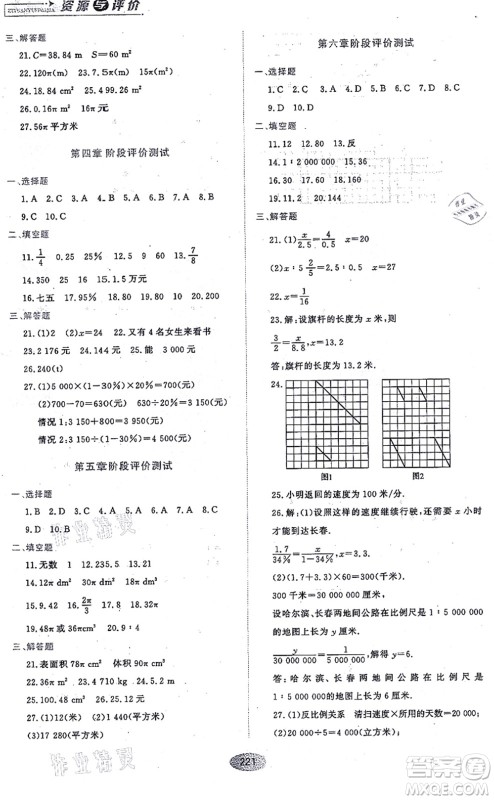 资源与评价
三、解答题
21.C=38.84 m  S=103.62 m²
22.120π(m)  23.7.5π(m)
24.18.84 m²  25.4 99.26 m²
26.0.16π m²  16π(m)
27.56π(平方米)
第四章 阶段评价测试
一、选择题
1.A  2.C  3.B  4.A  5.C  6.D  7.D  8.C
9.C  10.D
二、填空题
11.1/4  0.25  25%  12.60  9  13.4/3  7/8
14.350  25  16  15.1.5万(元)
16.七五  17.95%  18.21  19.2  40  20.200
三、解答题
21.(1)2  (2)x=24  22.又有4名女生来看书
23.2 176元  24.144元  25.能  3 000元
26.240(t)
27.(1)5 000×(1-30%)÷70%=5 000(元)
(2)700-70=630(元)
情况1:630÷(1-30%)÷70%≈1 286(元)
情况2:630÷(1-30%)=900(元)
第五章阶段评价测试
一、选择题
1.B  2.D  3.A  4.A  5.B  6.C  7.B  8.C
9.D  10.A
二、填空题
11.无数  1  12.235.5  13.21
14.12π dm²  15.9.42  16.2π/3  17.20π
18.4  19.48π或36π  20.9∶4
三、解答题
21.表面积78π cm²  体积90π cm³
22.36π dm³  23.4 710 kg  24.5.2 m
25.100 cm²  26.1.125 m
27.(1)12(米)  (2)942(平方米)
(3)17 280(元)
第六章阶段评价测试
一、选择题
1.C  2.C  3.D  4.A  5.D  6.B  7.B  8.C
9.D  10.D
二、填空题
11.12  12.80  13.反
14.1∶2 000 000  15.36
16.30  17.10  18.160
19.11.2  20.144
三、解答题
21.(1)x/2.5=4/0.5  x=20
(2)x∶5 2/5=2/0.5  x=
22.x=1/16
23.解:设旗杆的高度为x米,所列比例为
3/2=x/8.8,x=13.2
答:旗杆的高度为13.2米.
24.
图1  图2
25.小明返回的速度为200米/分
26.解:(1)设按照这样的速度继续行驶,还要x小时才能到达长春.
1.7/34%=x/(1-34%),x=3.3
(2)(1.7+3.3)×60=300(千米)
设哈尔滨、长春两地间公路在比例尺是1∶5 000 000的地图上长y厘米.
y/30 000 000=1/5 000 000,解得y=6.
答:哈尔滨、长春两地间公路在比例尺是1∶5 000 000的地图上长6厘米.
27.(1)反比例关系  请扫速度×所用的天数=20 000,
221
作业精灵
答案圈
MXQE.COM